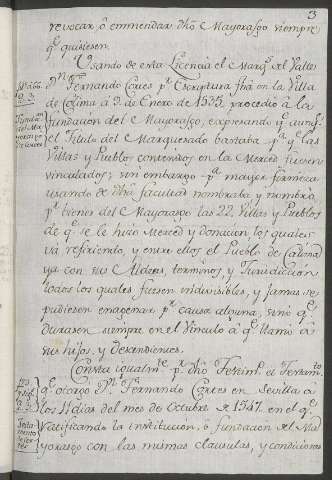 3
revocar, ó enmendar dho Mayorasgo siempre
qe. quisiesen.
Usando de esta Licencia el Marqs. del Valle
Dn. Fernando Cortes pr. Escriptura fha en la Villa
de Colima á 9 de Enero de 1535. procedió á la
fundacion del Mayorasgo, expresando qe. aunqe.
el Titulo del Marquesado bastaba pa. qe. las
Villas y Pueblos contenidos en la Merced fuesen
vinculados; sin embargo pa. mayor firmeza
usando de dha facultad nombraba y nombró
pr. bienes del Mayorasgo las 22. Villas y Pueblos
de qe. se le hizo Merced y donacion los quales
vá refiriendo, y entre ellos el Pueblo de
ya con sus Aldeas, terminos, y Jurisdiccion
todos los quales fuesen indivisibles, y jamas se
pudiesen enagenar pr. causa alguna, sinó qe.
durasen siempre en el Vinculo á qe. llamó á
sus hijos, y descendientes.
Consta igualmte. pr. dho Testimo. el Testamto.
qe. otorgó Dn. Fernando Cortes en Sevilla á
los 11 dias del mes de Octubre de 1547. en el qe.
ratificando la institucion, ó fundacion del Ma
yorasgo con las mismas clausulas, y condiciones
Fundon.
del Ma
yorasgo
Testa
mento